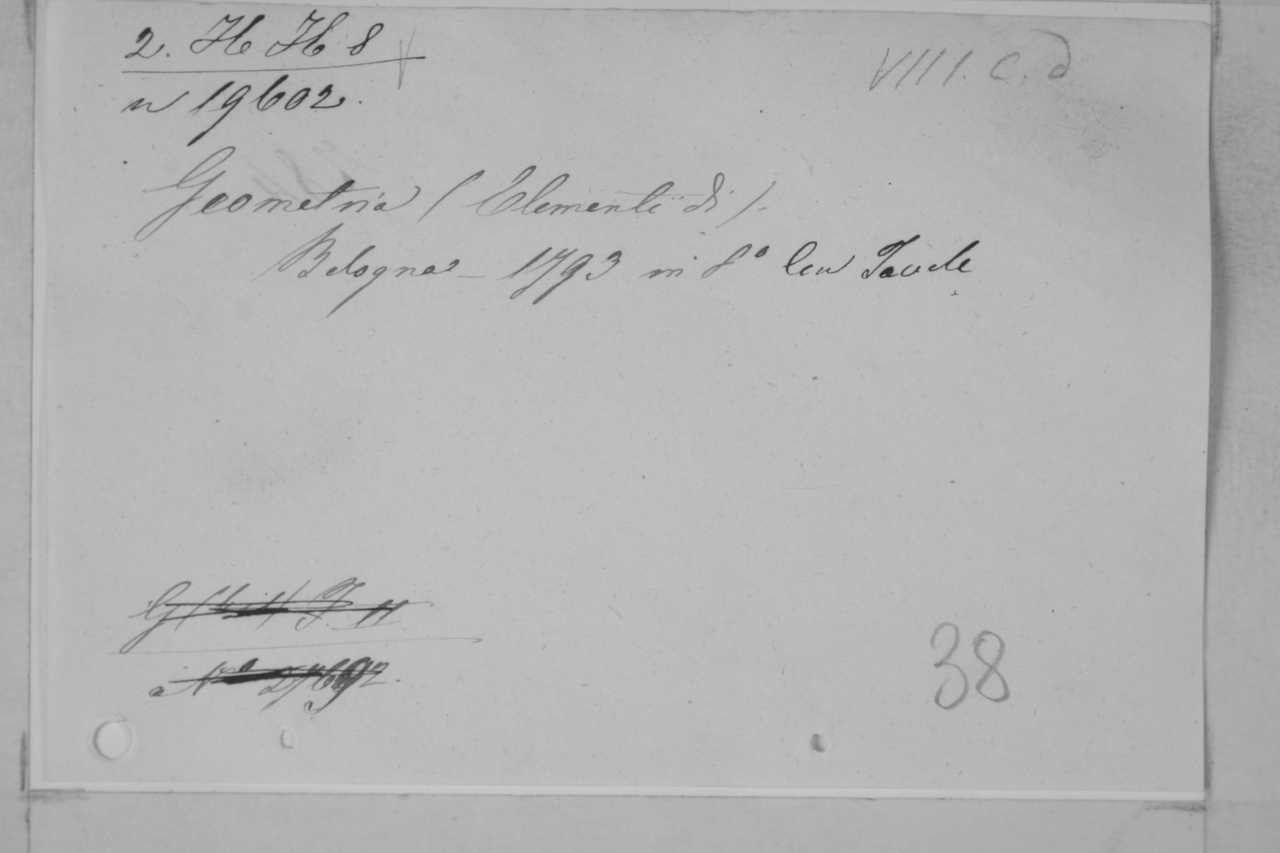 2. H H 8
VIII. C. d
n 19602.
Geometria (Elementi di).
Bologna - 1793 in 8° Con Tavole
38